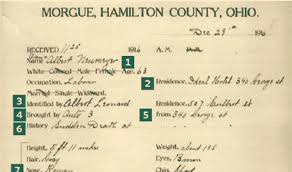 MORGUE, HAMILTON COUNTY, OHIO.
Dec 29th 1916
RECEIVED 1125 1916 A. M. P.M.
Name Albert 1
White Colored Male Female Age 63
Occupation Labor 2 Residence, Ideal Hotel 340 George st
Married Single Widowed.
3 Identified by Albert Leonard Residence, 527 st
4 Brought by Auto 3 5 from 340 George st
6 History Sudden Death at
Height, 5 ft 11 inches Weight about 185
Hair, Gray Eyes, Brown
7 Nose, Roman Chin,